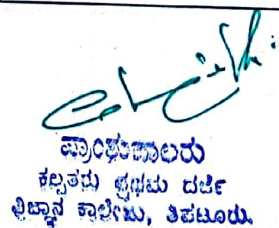 ಪ್ರಾಂಶುಪಾಲರು
ಕಲ್ಪತರು ಪ್ರಥಮ ದರ್ಜೆ
ವಿಜ್ಞಾನ ಕಾಲೇಜು, ತಿಪಟೂರು.